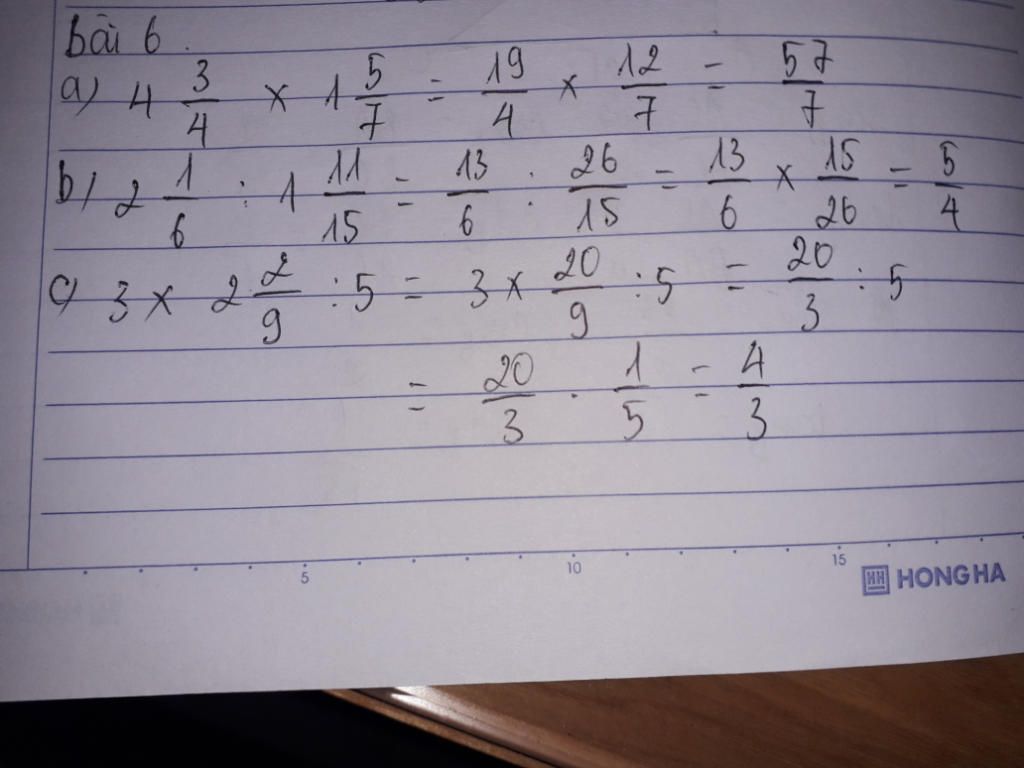 bài 6.
a) 4 3/4 x 1 5/7 = 19/4 x 12/7 = 57/7
b) 2 1/6 : 1 11/15 = 13/6 : 26/15 = 13/6 x 15/26 = 5/4
c) 3 x 2 2/9 : 5 = 3 x 20/9 : 5 = 20/3 : 5
= 20/3 . 1/5 = 4/3
5 10 15
HH HONG HA